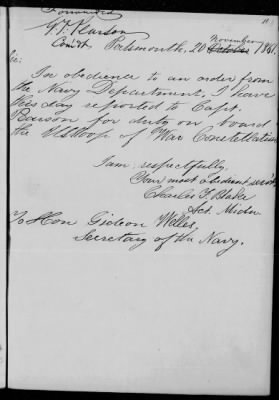 Forwarded
G. F. Pearson
Comdt. Portsmouth, 20 November 1861.
Sir:
In obedience to an order from
the Navy Department, I have
this day reported to Capt.
Pearson for duty on board
the U.S. Sloop of War Constellation
I am, respectfully
Your most obedient servt.
Charles F. Blake
Act. Midn.
To Hon Gideon Welles,
Secretary of the Navy.